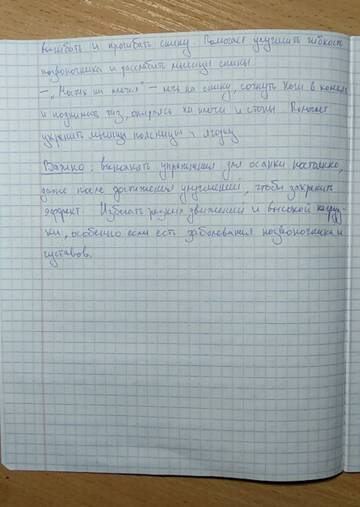 выгибать и прогибать спину. Помогает улучшить гибкость
позвоночника и расслабить мышцы спины.
– „Мостик на плечах" – лёжа на спину, согнуть ноги в коленях
и поднимать таз, опираясь на плечи и стопы. Помогает
укрепить мышцы поясницы и ягодиц.
Важно: выполнять упражнения для осанки постоянно,
даже после достижения улучшений, чтобы закрепить
эффект. Избегать резких движений и высокой нагруз-
ки, особенно если есть заболевания позвоночника и
суставов.